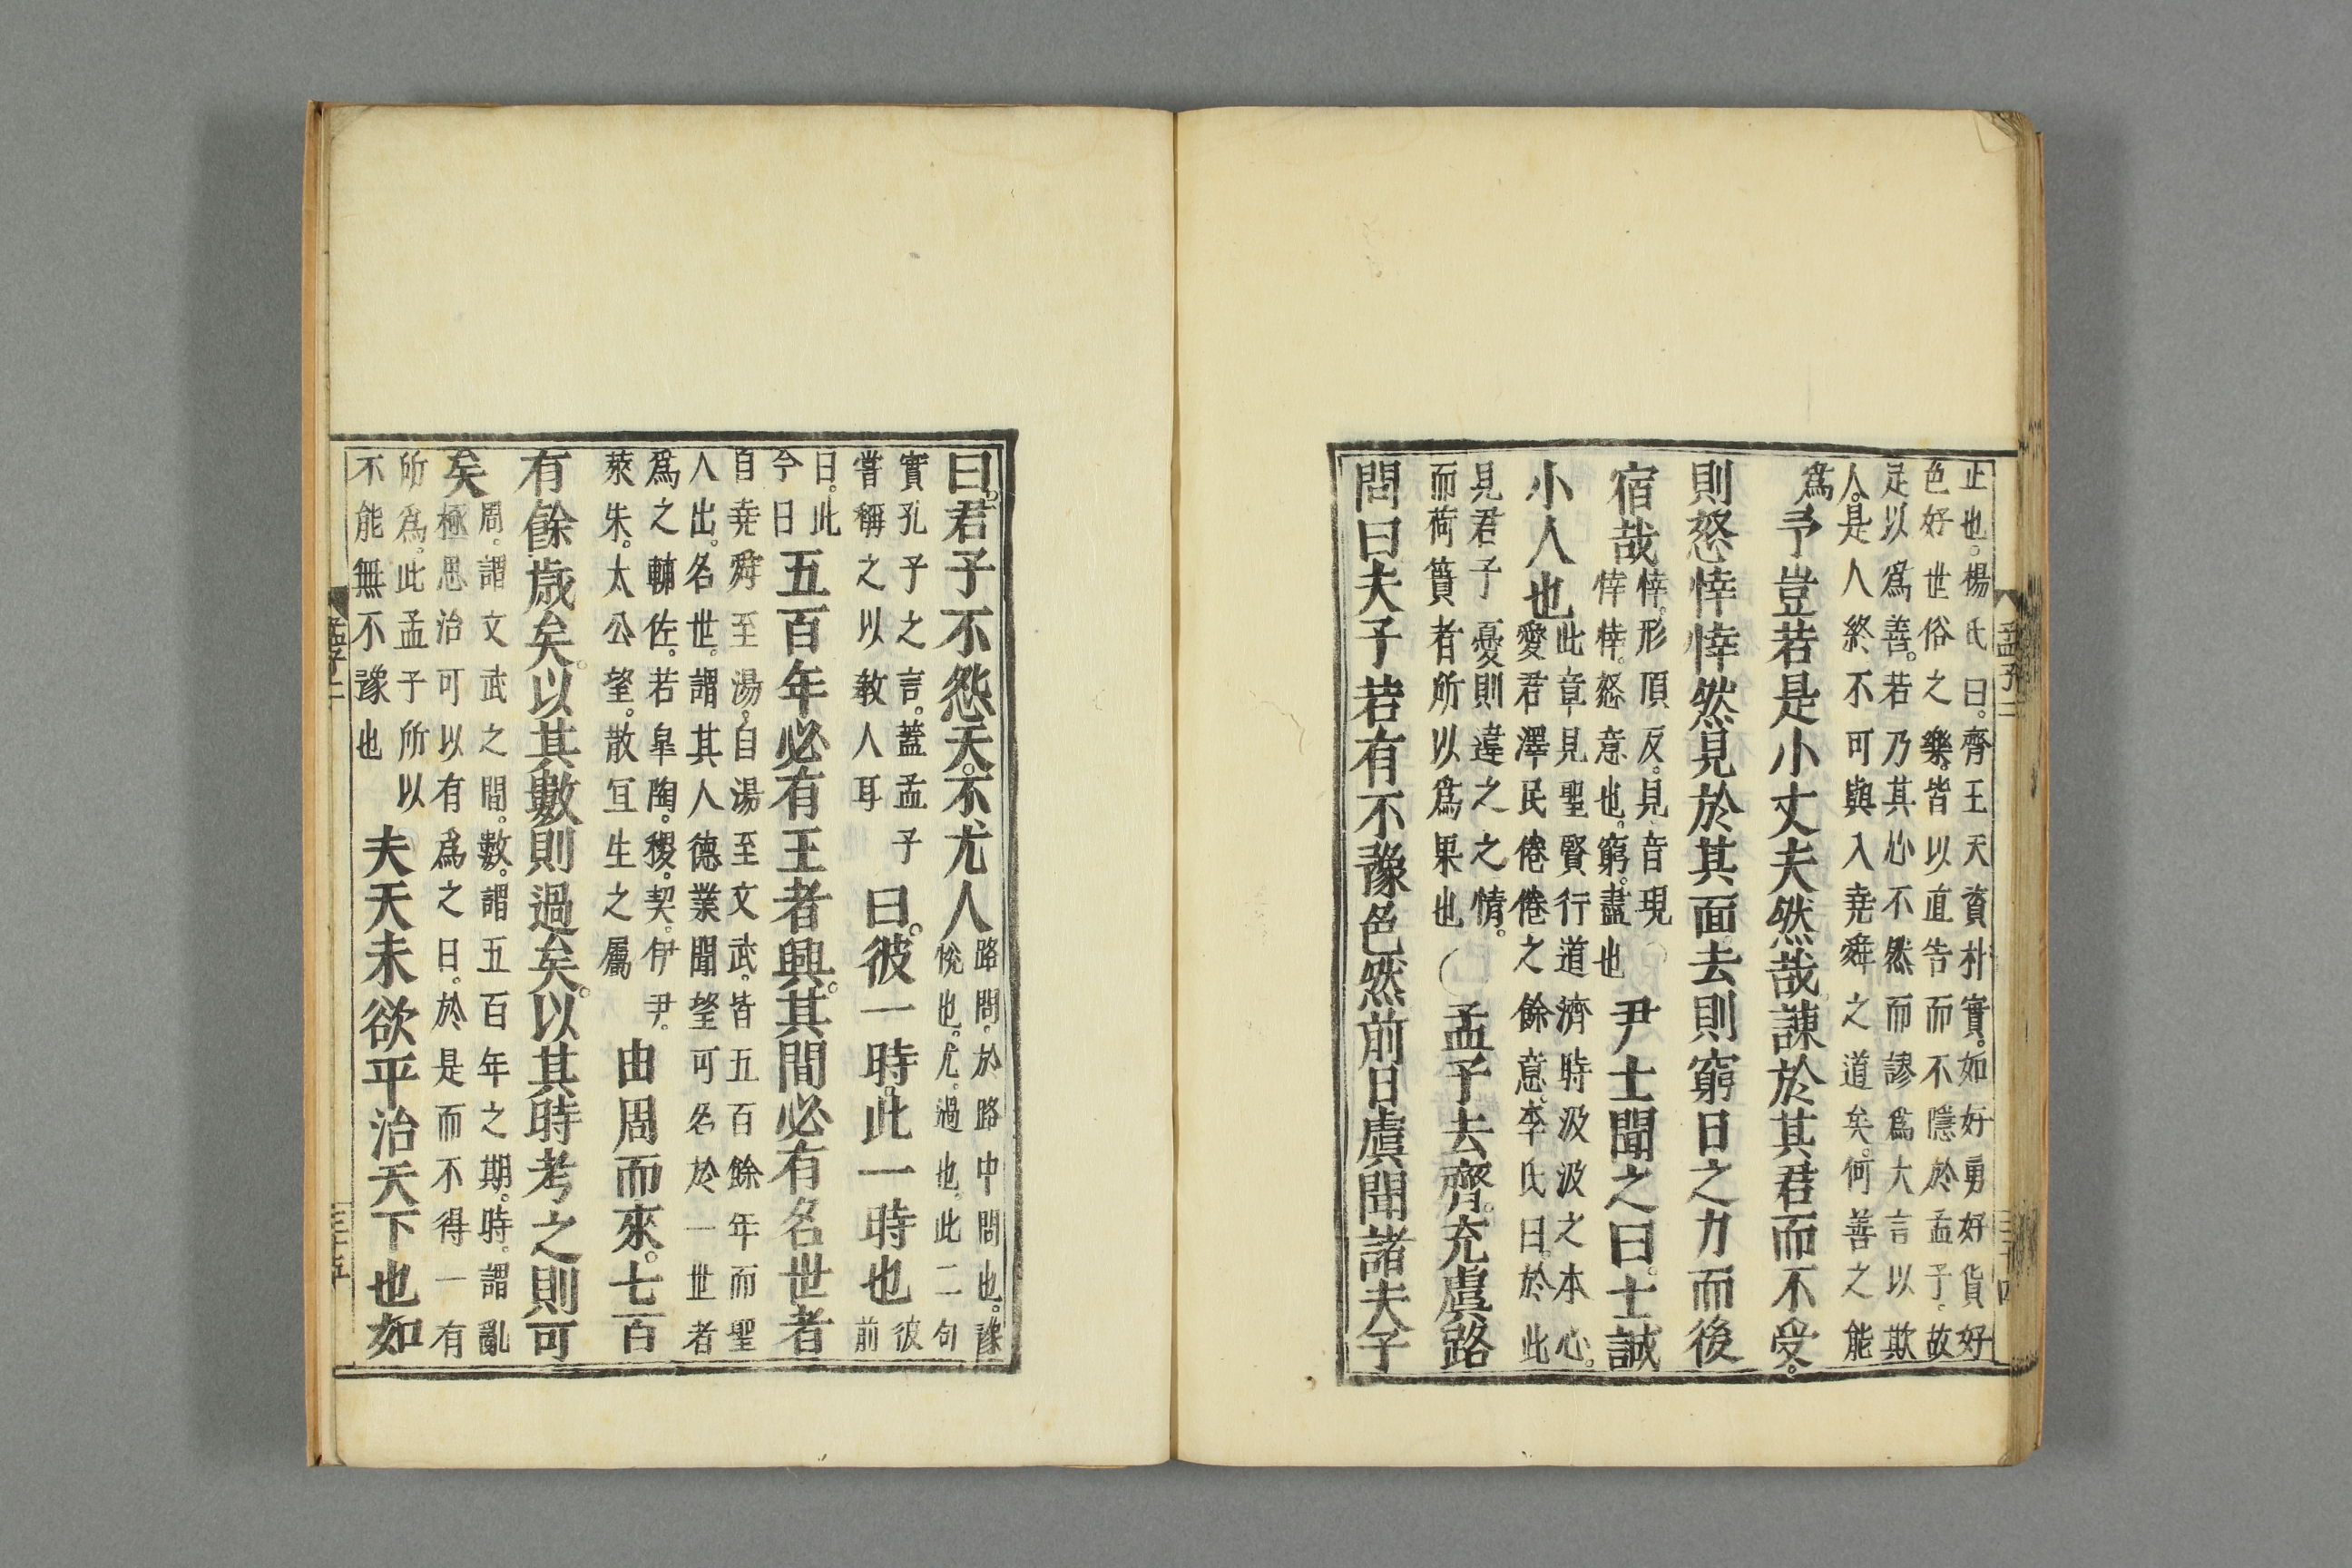 止也。楊氏曰。齊王天資朴實。如好勇好貨好
色好世俗之樂。皆以直告而不隱於孟子。故
足以爲善。若乃其心不然而謬爲大言以欺
人。是人終不可與入堯舜之道矣。何善之能
爲
予豈若是小丈夫然哉諫於其君而不受。
則怒悻悻然見於其面去則窮日之力而後
宿哉
悻。形頂反。見音現
悻悻。怒意也。窮。盡也
尹士聞之曰。士誠
小人也
此章見聖賢行道濟時汲汲之本心。
愛君澤民惓惓之餘意。李氏曰。於此
見君子憂則違之之情。
而荷蕢者所以爲果也
孟子去齊。充虞路
問曰夫子若有不豫色然前日虞聞諸夫子
孟子二
三十四
曰。君子不怨天。不尤人
路問。於路中問也。豫
悅也。尤。過也。此二句
實孔子之言。蓋孟子
嘗稱之以敎人耳
曰。彼一時。此一時也
彼
前
日。此
今日
五百年必有王者興。其間必有名世者
自堯舜至湯。自湯至文武。皆五百餘年而聖
人出。名世。謂其人德業聞望可名於一世者
爲之輔佐。若皐陶。稷。契。伊尹。
萊朱。太公望。散宜生之屬
由周而來。七百
有餘歲矣。以其數則過矣。以其時考之則可
矣
周。謂文武之間。數。謂五百年之期。時。謂亂
極思治可以有爲之日。於是而不得一有
所爲。此孟子所以
不能無不豫也
夫天未欲平治天下也如
孟子二
三十五